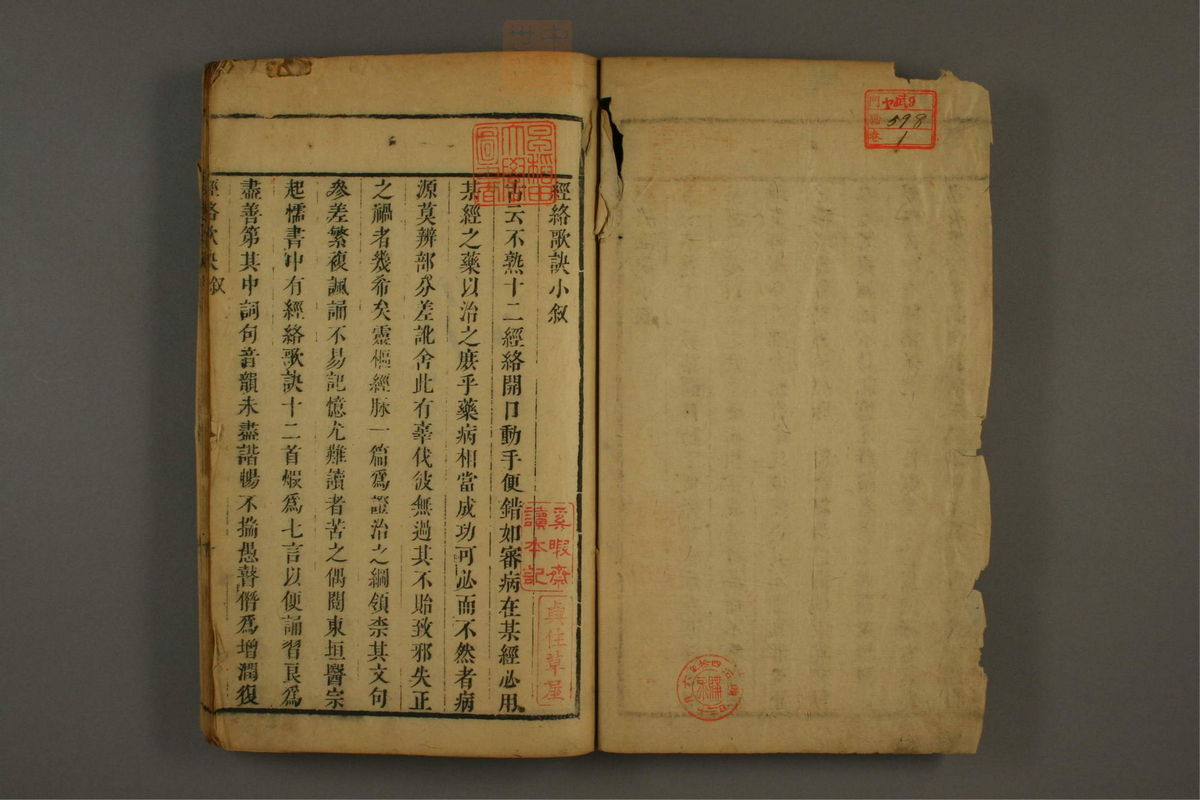 經絡歌訣小叙
古云不熟十二經絡開口動手便錯如審病在某經必用
某經之藥以治之庶乎藥病相當成功可必而不然者病
源莫辨部分差訛舍此有辜伐彼無過其不貽致邪失正
之禍者幾希矣靈樞經脉一篇爲證治之綱領柰其文句
參差繁複諷誦不易記憶尤難讀者苦之偶閱東垣醫宗
起懦書中有經絡歌訣十二首煅爲七言以便誦習良爲
盡善第其中詞句音韻未盡諧暢不揣愚瞽僭爲增潤復
經絡歌訣叙
早稻田大學圖書
奚暇齋讀本記
貞住草屋
門
號 598
卷 1